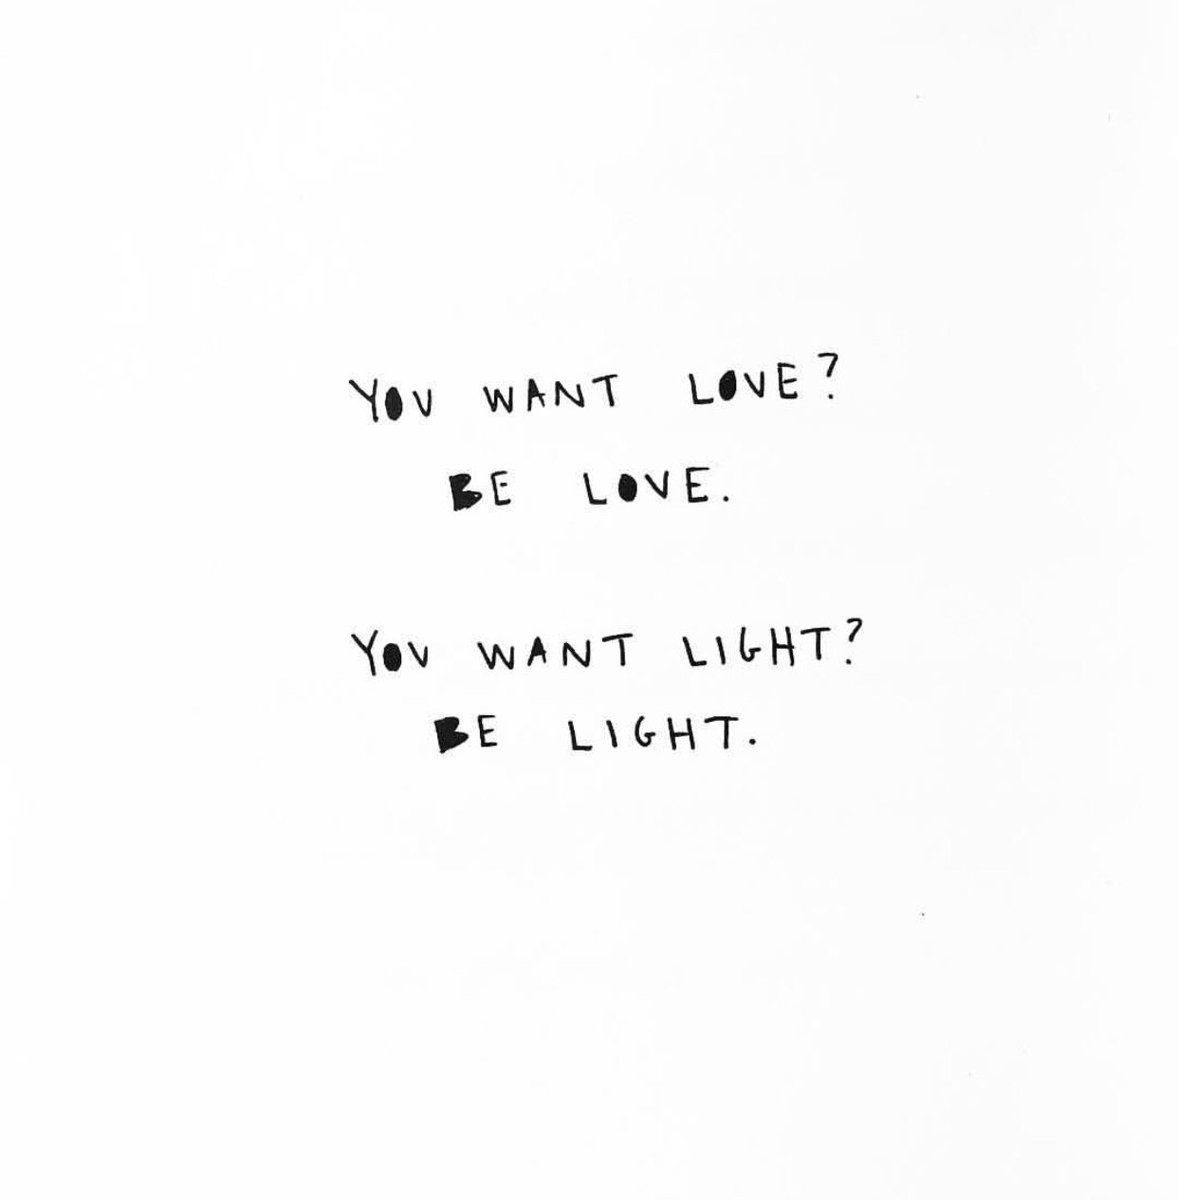 YOU WANT LOVE?
BE LOVE.
YOU WANT LIGHT?
BE LIGHT.